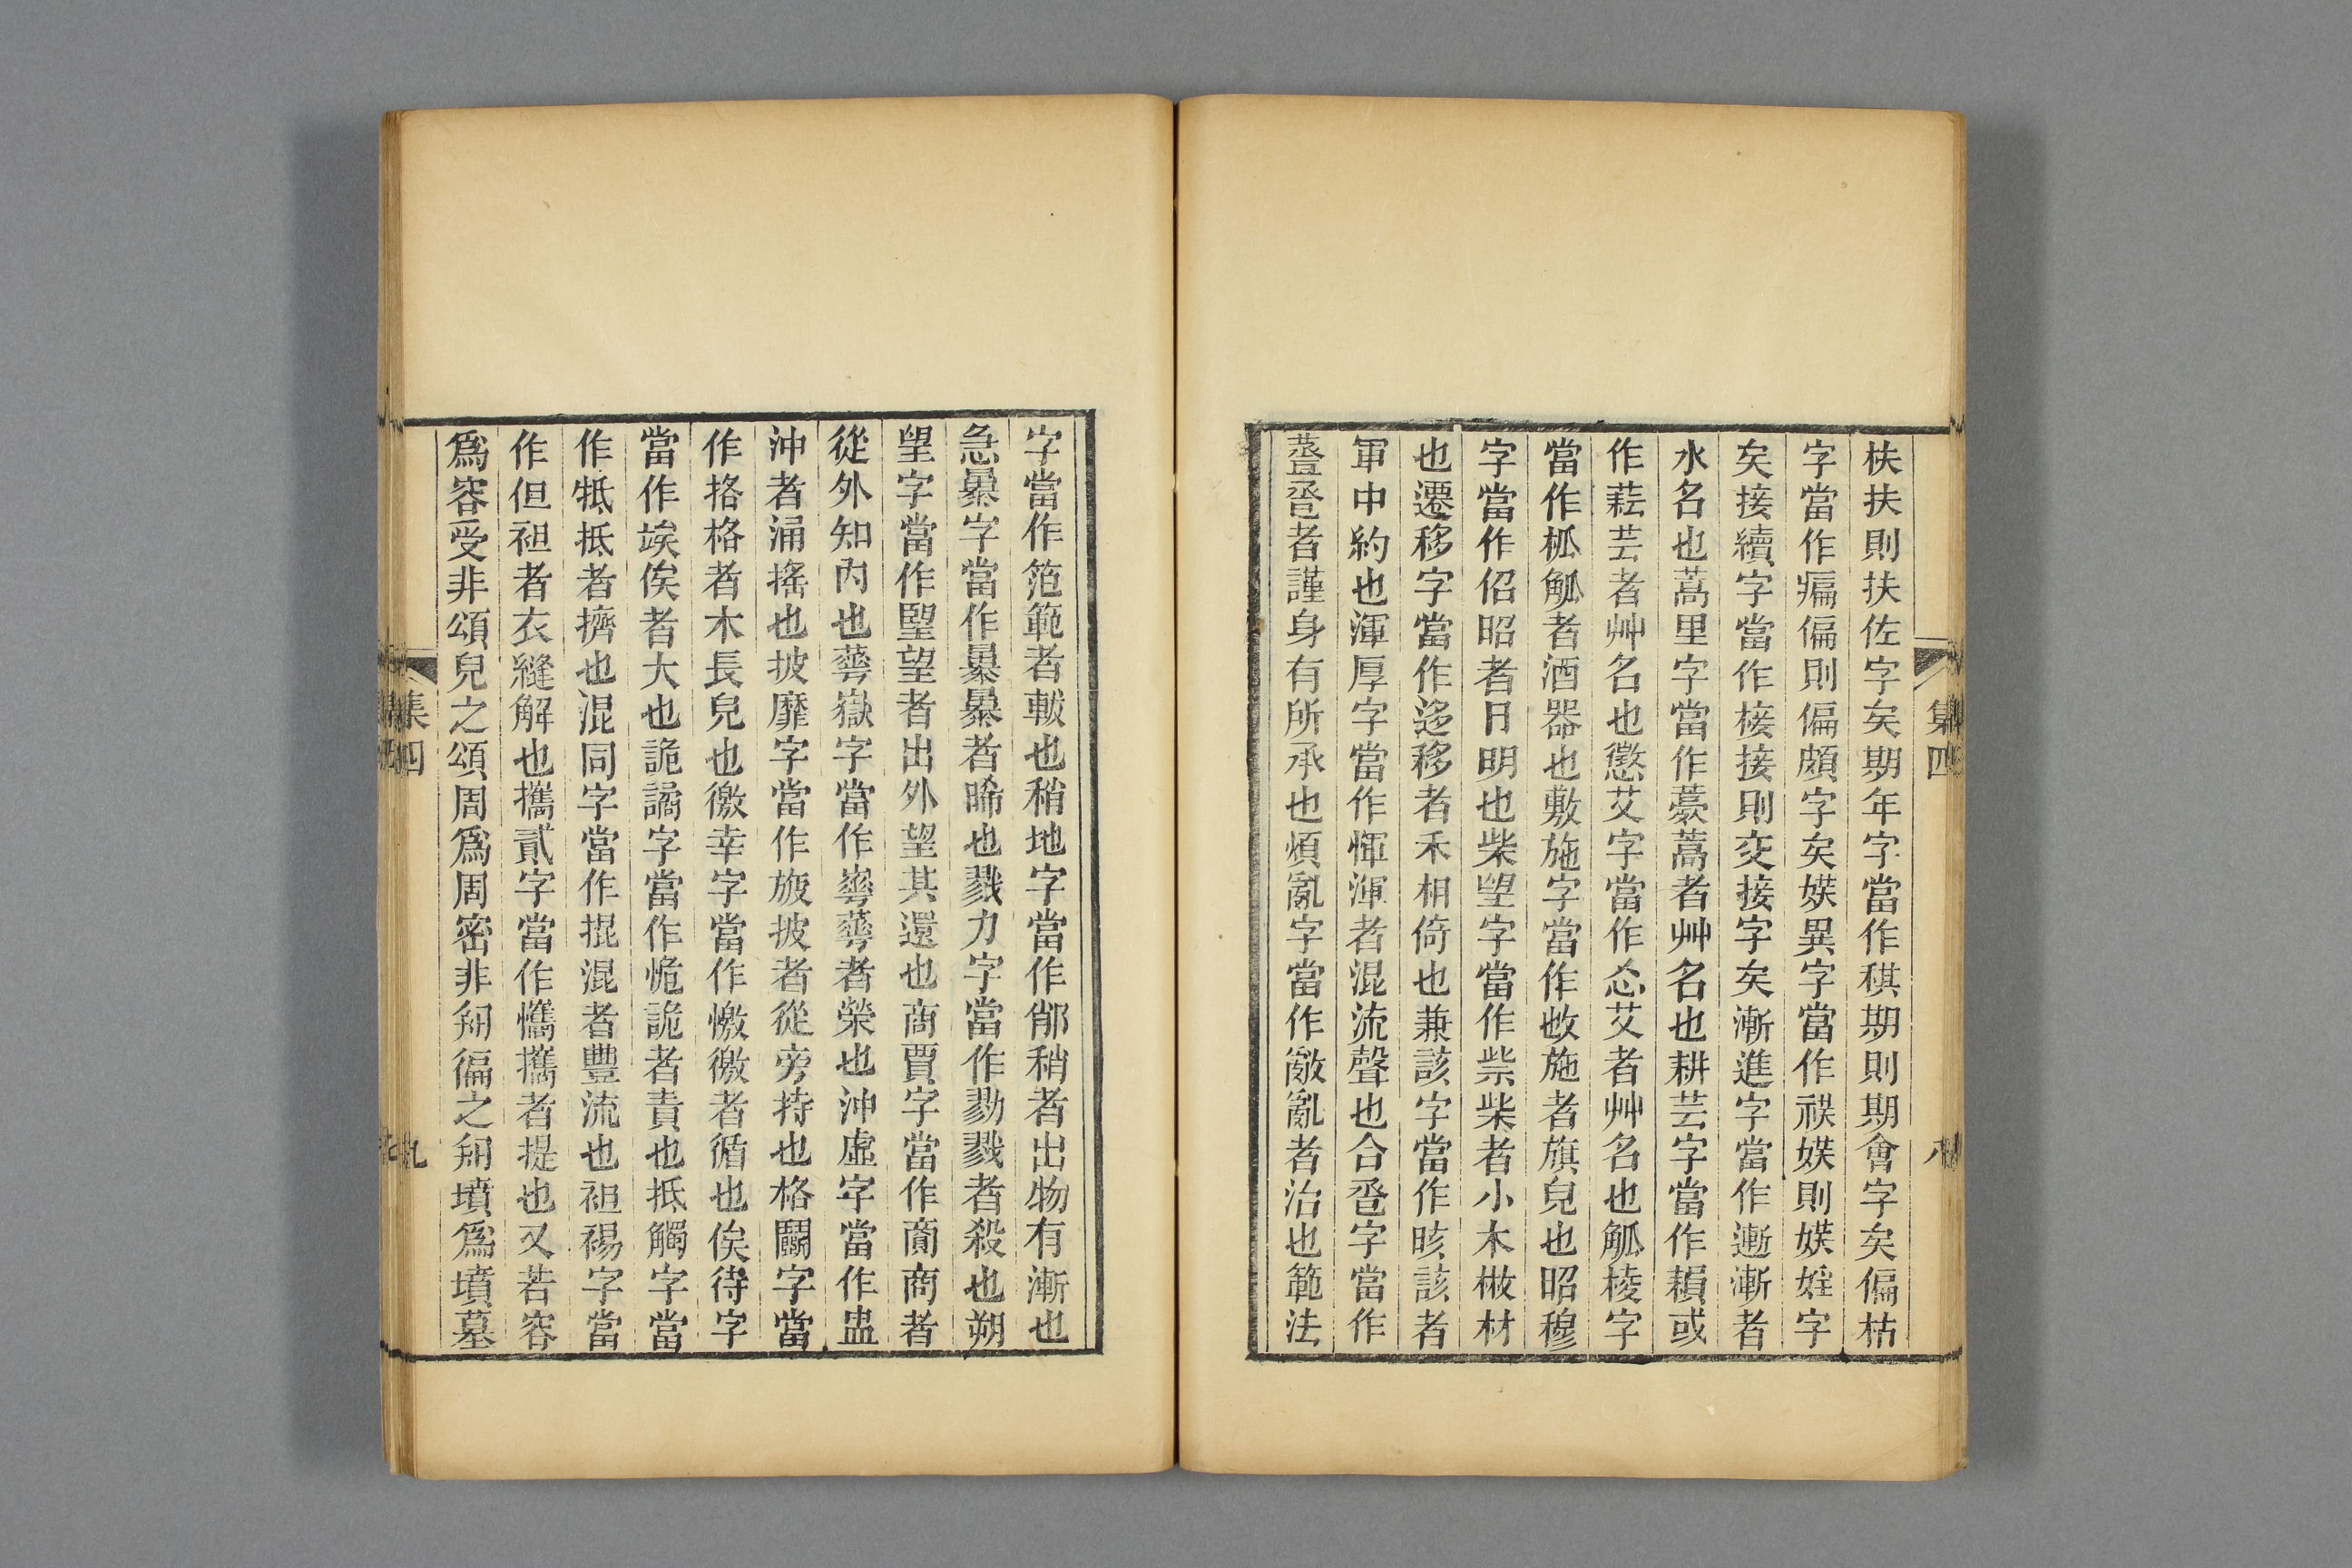 扶扶則扶佐字矣期年字當作稘期則期會字矣偏枯
字當作㾫偏則偏頗字矣媖異字當作祦媖則媖婬字
矣接續字當作椄接則交接字矣漸進字當作漸者
水名也蒿里字當作薧蒿者艸名也耕芸字當作䅼或
作䕌芸者艸名也懲艾字當作忞艾者艸名也觚棱字
當作柧觚者酒器也敷施字當作㪉施者旗皃也昭穆
字當作佋昭者日明也柴望字當作祡柴者小木散材
也遷移字當作迻移者禾相倚也兼該字當作晐該者
軍中約也渾厚字當作惲渾者混流聲也合巹字當作
𧯷巹者謹身有所承也煩亂字當作敵亂者治也範法
字當作笵範者軷也稍地字當作䣠稍者出物有漸也
急㬥字當作曓㬥者晞也戮力字當作勠戮者殺也朔
望字當作朢望者出外望其還也商賈字當作賣商者
從外知內也蕚嶽字當作崋蕚者榮也沖虛字當作盅
沖者涌搖也披靡字當作旇披者從旁持也格鬭字當
作挌格者木長皃也徼幸字當作憿徼者循也俟待字
當作竢俟者大也詭譎字當作恑詭者責也抵觸字當
作牴抵者擠也混同字當作掍混者豐流也袒裼字當
作但袒者衣縫解也攜貳字當作懏攜者提也又若容
爲容受非頌皃之頌周爲周密非匊徧之匊墳爲墳墓
集四
八
集四
九